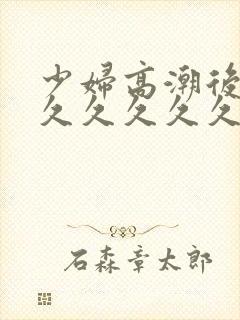 少婦高潮後
久久久久久
石森章太郎